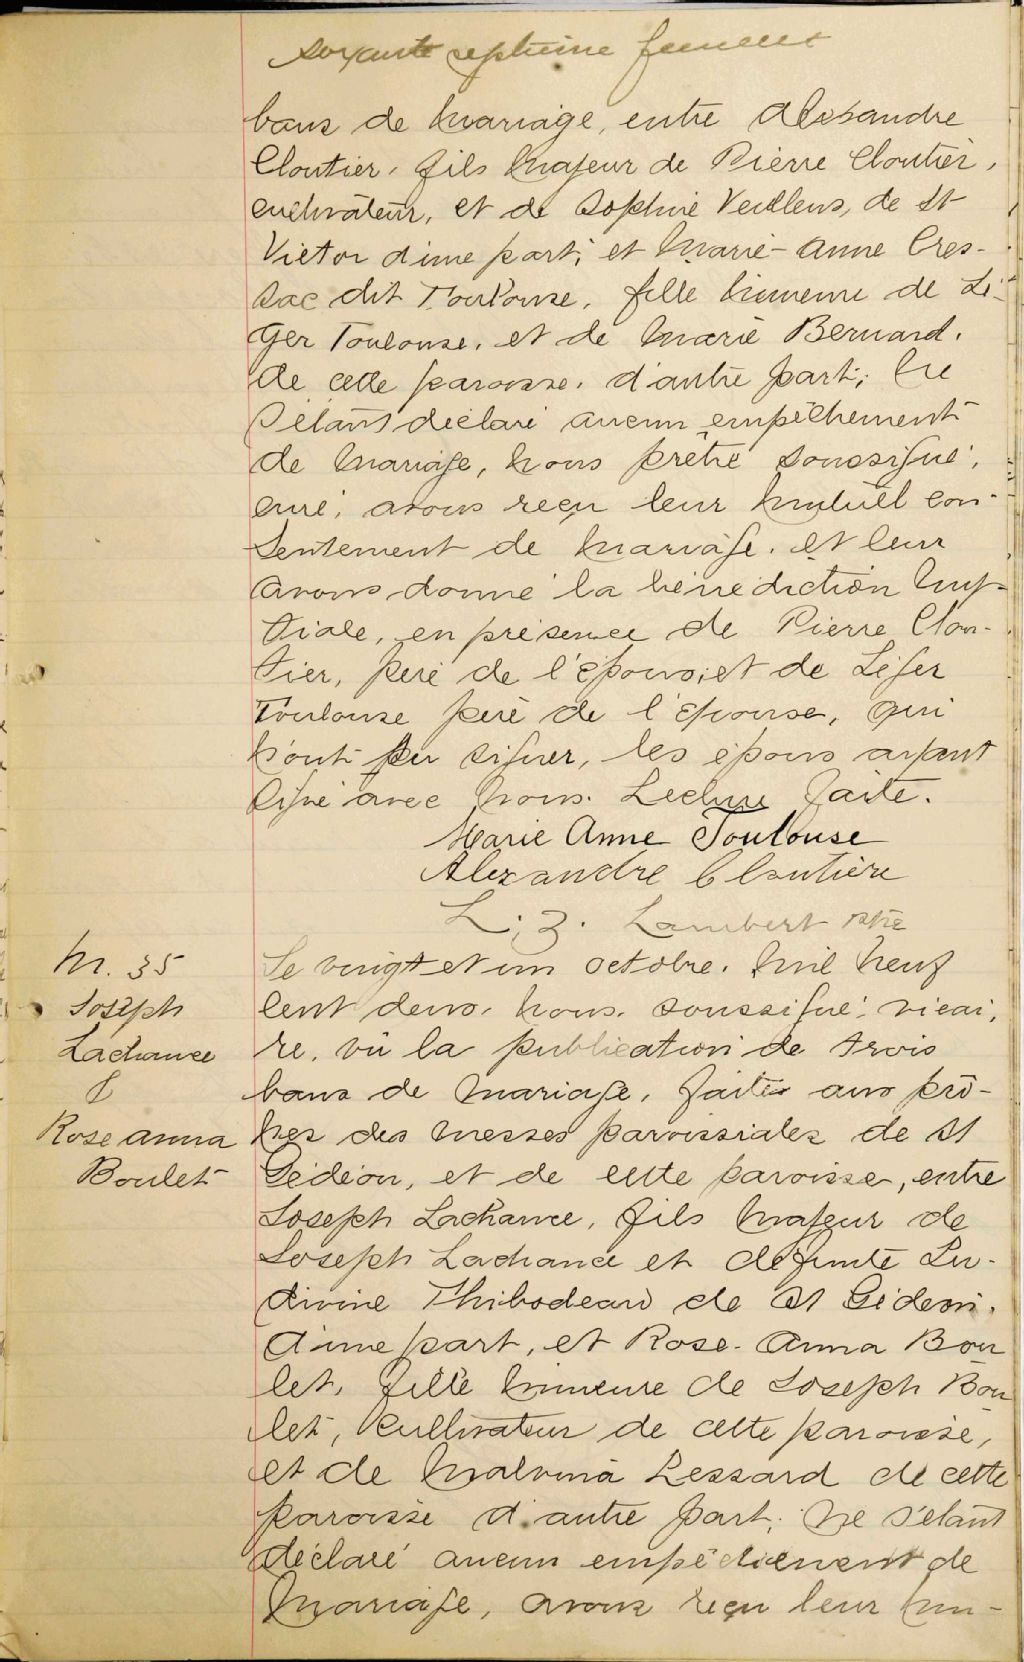 soixante septième feuillet
bans de mariage, entre Alexandre
Cloutier, fils majeur de Pierre Cloutier,
cultivateur, et de Sophie Veilleux, de St
Victor d'une part; et Marie-Anne Cres-
sac dit Toulouse, fille mineure de Lé-
ger Toulouse, et de Marie Bernard,
de cette paroisse, d'autre part; ne
s'étant déclaré aucun empêchement
de mariage, nous prêtre soussigné,
curé, avons reçu leur mutuel con-
sentement de mariage, et leur
avons donné la bénédiction nup-
tiale, en présence de Pierre Clou-
tier, père de l'époux, et de Léger
Toulouse père de l'épouse, qui
n'ont pu signer, les époux ayant
signé avec nous. Lecture faite.
Marie Anne Toulouse
Alexandre Cloutière
L. Z. Lambert ptre
M. 35
Joseph
Lachance
&
Rose anna
Boulet
Le vingt et un octobre, mil neuf
cent deux, nous, soussigné, vicai-
re, vu la publication de trois
bans de mariage, faite aux prô-
nes des messes paroissiales de St
Gédéon, et de cette paroisse, entre
Joseph Lachance, fils majeur de
Joseph Lachance et défunte Lu-
divine Thibodeau de St Gédéon,
d'une part, et Rose-Anna Bou
let, fille mineure de Joseph Bou
let, cultivateur de cette paroisse,
et de Malvina Lessard de cette
paroisse d'autre part; ne s'étant
déclaré aucun empêchement de
mariage, avons reçu leur mu-